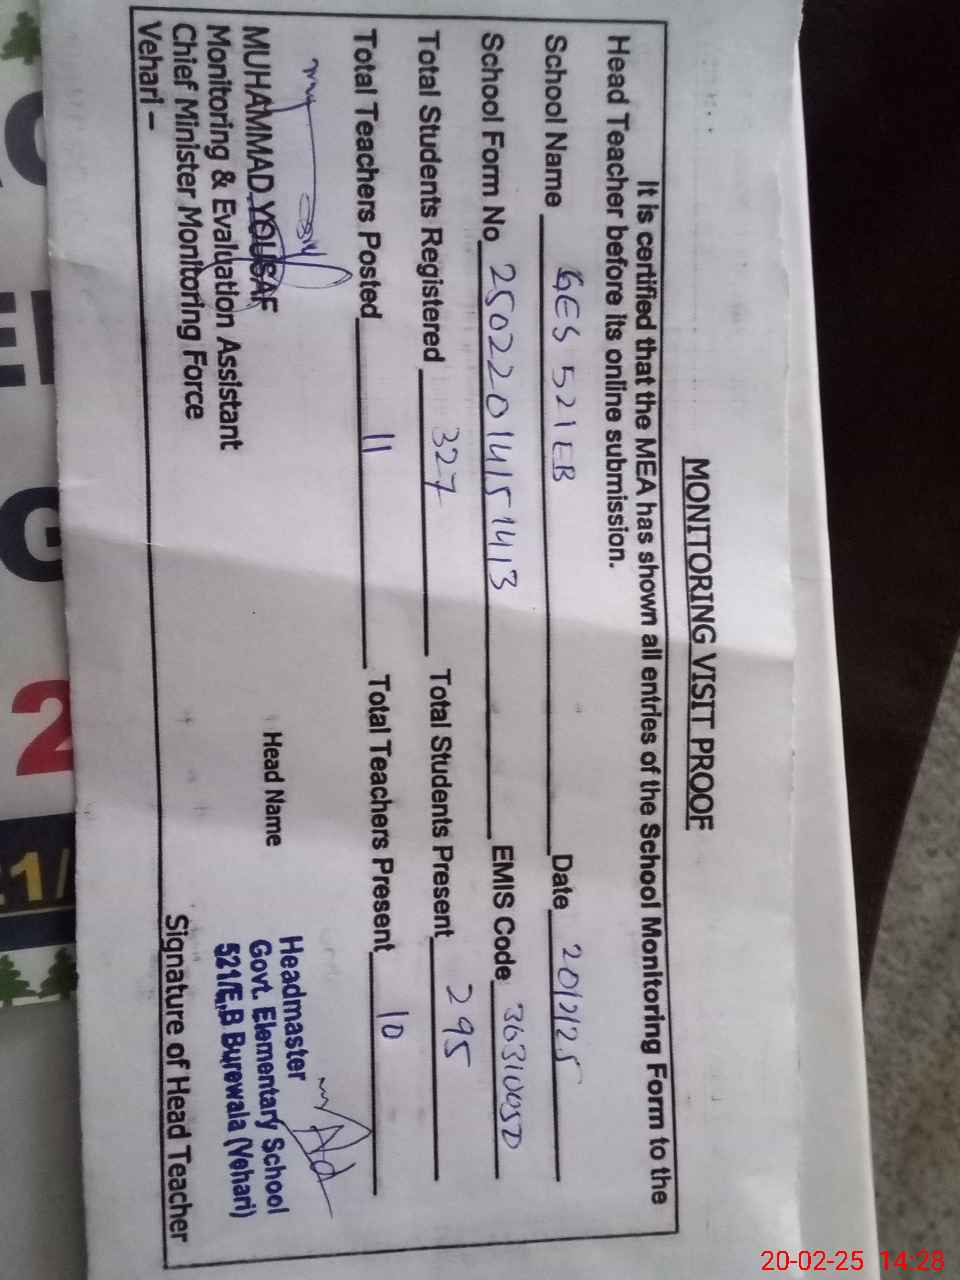 MONITORING VISIT PROOF
It is certified that the MEA has shown all entries of the School Monitoring Form to the
Head Teacher before its online submission.
School Name GES 521 EB Date 20/2/25
School Form No 25022014151413 EMIS Code
Total Students Registered 327 Total Students Present 295
Total Teachers Posted 11 Total Teachers Present 10
MUHAMMAD YOUSAF
Monitoring & Evaluation Assistant
Chief Minister Monitoring Force
Vehari -
Head Name
Headmaster
Govt. Elementary School
521/E.B Burewala (Vehari)
Signature of Head Teacher
G
2
1/
20-02-25 14:28